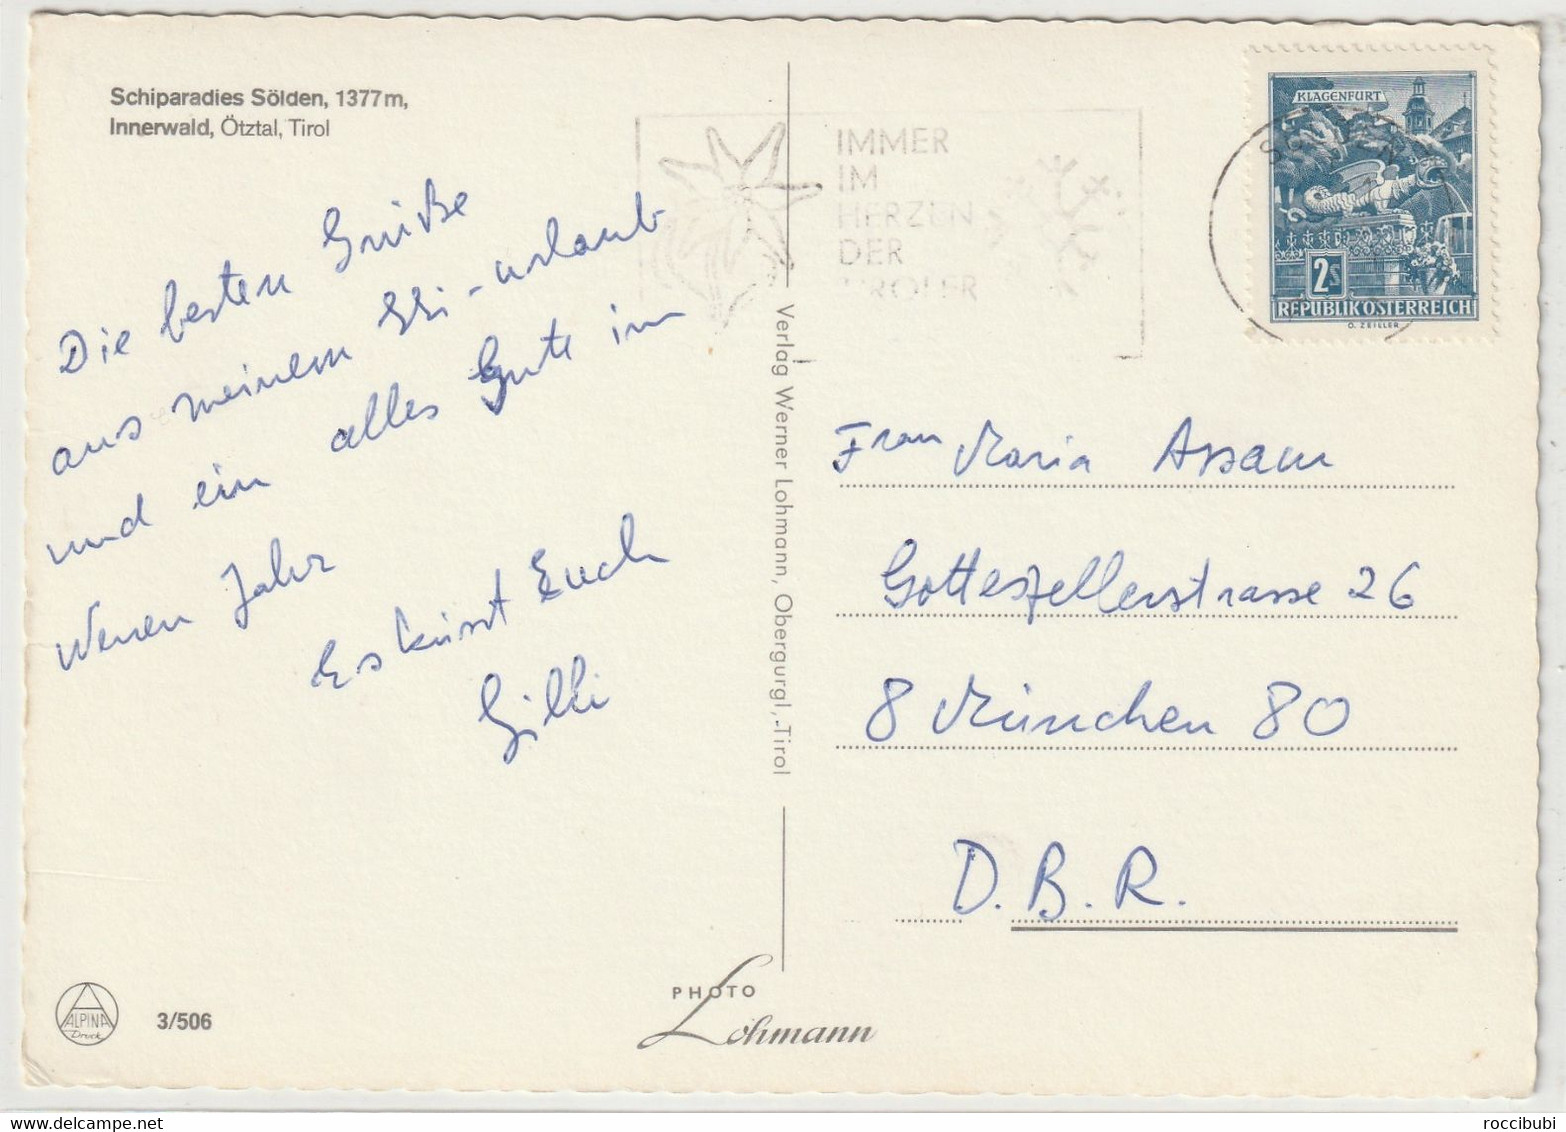 Schiparadies Sölden, 1377m,
Innerwald, Ötztal, Tirol
Die besten Grüße
aus meinem Schi-urlaub
und ein alles Gute im
neuen Jahr
Es küsst Euch
Gilli
ALPINA
Druck
3/506
Verlag Werner Lohmann, Obergurgl, Tirol
PHOTO
Lohmann
IMMER
IM
HERZEN
DER
TIROLER
SÖLDEN
KLAGENFURT
2S
REPUBLIK ÖSTERREICH
O. ZEILLER
Frau Maria Assam
Gotteszellerstrasse 26
8 München 80
D.B.R.
roccibubi
www.delcampe.net